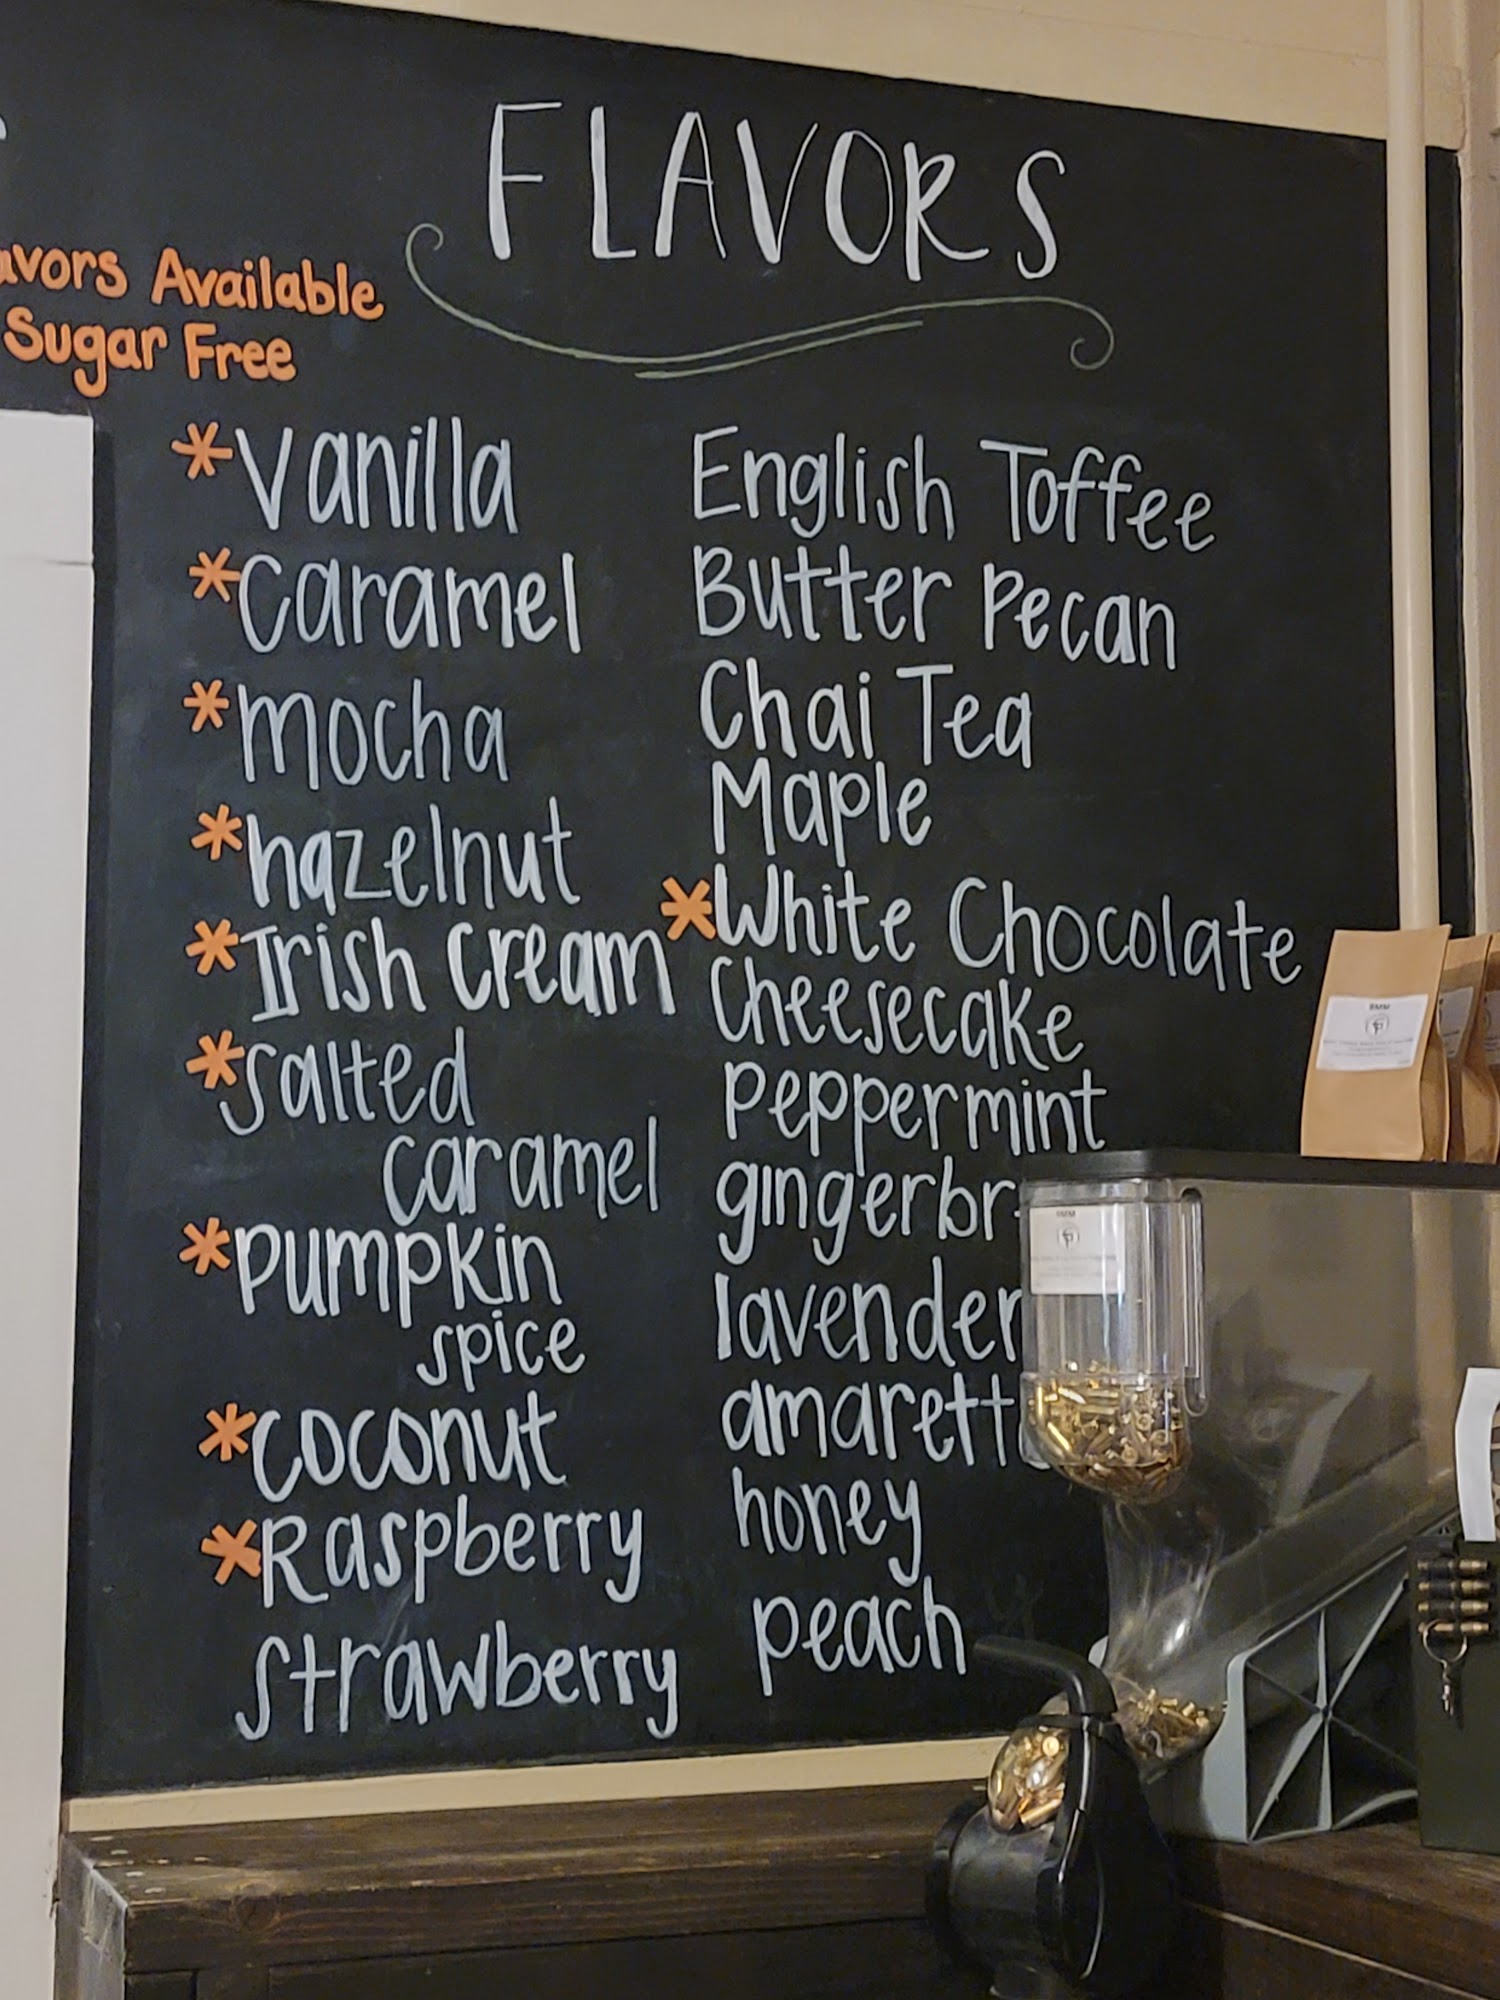 FLAVORS
Available
Sugar Free
*Vanilla
*Caramel
*mocha
*hazelnut
*Irish Cream
*Salted
caramel
*Pumpkin
spice
*coconut
*Raspberry
strawberry
English Toffee
Butter Pecan
Chai Tea
Maple
*White Chocolate
Cheesecake
peppermint
gingerbr
lavender
amarett
honey
peach